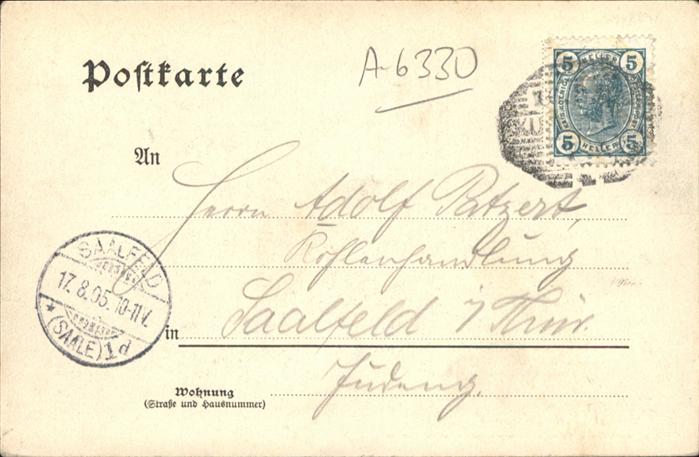 Postkarte
A-6330
5 HELLER 5
5 HELLER 5
An
Herrn Adolf Patzert,
Kohlenhandlung
SAALFELD
17.8.05. 10-11V.
* (SAALE) 1d
in Saalfeld i/Thür.
Judeng.
Wohnung
(Straße und Hausnummer)